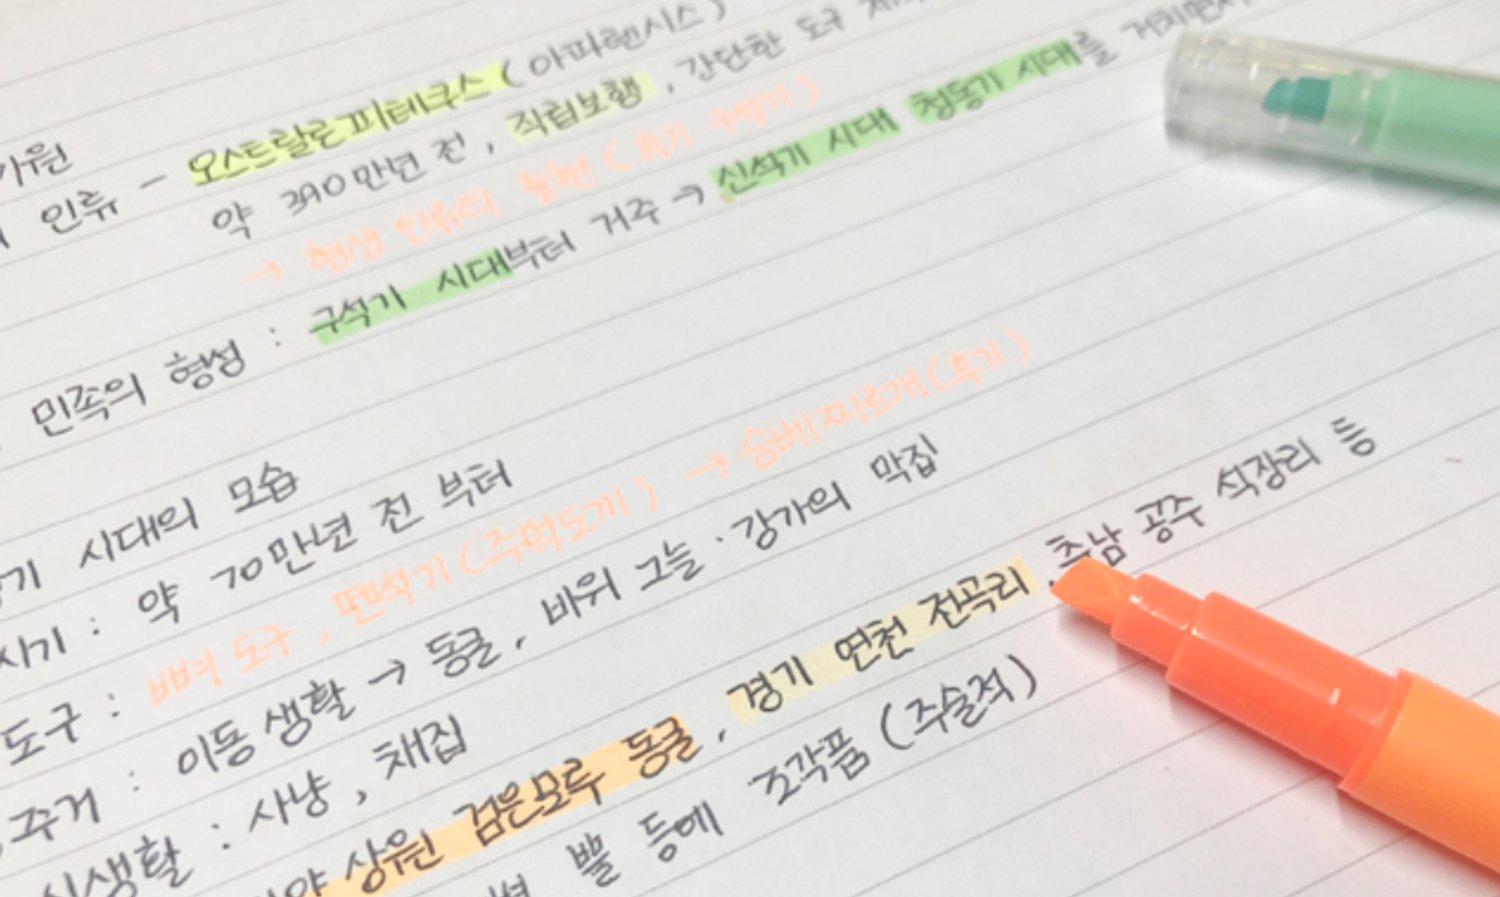 기원
인류 - 오스트랄로피테쿠스 (아파렌시스)
약 390만년 전, 직립보행, 간단한 도구
→ 현생 인류의 출현 (후기 구석기)
민족의 형성 : 구석기 시대부터 거주 → 신석기 시대 청동기 시대를 거치면서
기 시대의 모습
시기 : 약 70만년 전 부터
도구 : 뼈 도구, 뗀석기 (주먹도끼) → 슴베찌르개 (후기)
주거 : 이동생활 → 동굴, 바위 그늘 · 강가의 막집
식생활 : 사냥, 채집
상원 검은모루 동굴, 경기 연천 전곡리, 충남 공주 석장리 등
뿔 등에 조각품 (주술적)